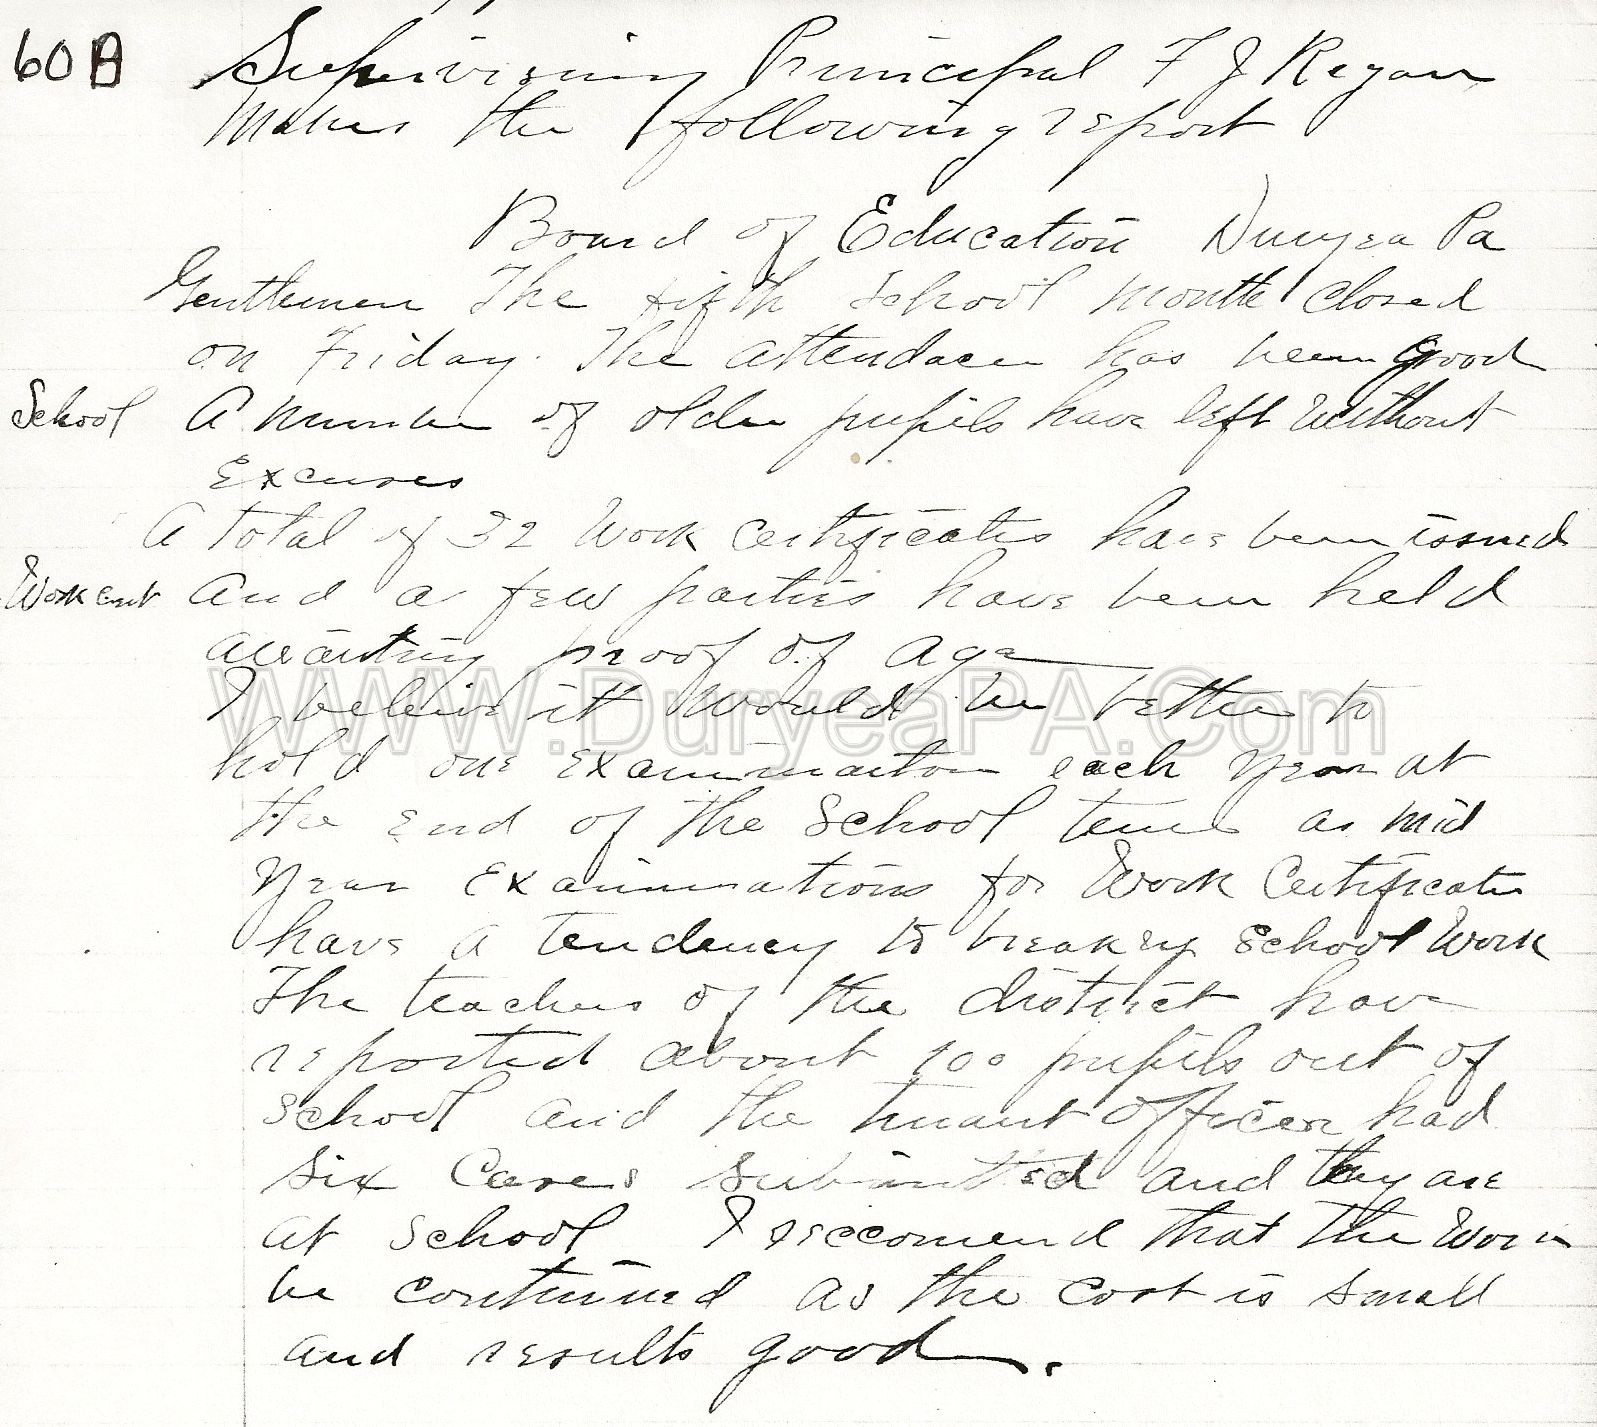 60B
Supervising Principal F J Regan
Makes the following report
Board of Education Duryea Pa
Gentlemen The fifth School month closed
on Friday. The attendace has been good
School A number of older pupils have left without
Excuses
A total of 32 Work Certificates have been issued
Work cert And a few parties have been held
awaiting proof of age
I beleive it would be better to
WWW.DuryeaPA.Com
hold one examination each year at
the end of the School term as mid
year examinations for Work Certificates
have a tendency to break up school work
The teachers of the district have
reported about 100 pupils out of
school and the truant officer had
six Cases submitted and they are
at school I reccomend that the Work
be continued as the cost is small
and results good.